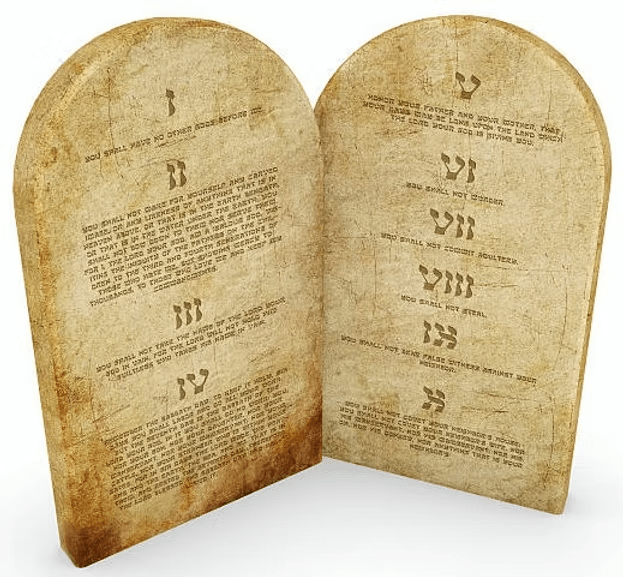 I
YOU SHALL HAVE NO OTHER GODS BEFORE ME.
II
YOU SHALL NOT MAKE FOR YOURSELF ANY CARVED
IMAGE, OR ANY LIKENESS OF ANYTHING THAT IS IN
HEAVEN ABOVE, OR THAT IS IN THE EARTH BENEATH,
OR THAT IS IN THE WATER UNDER THE EARTH. YOU
SHALL NOT BOW DOWN TO THEM NOR SERVE THEM.
FOR I, THE LORD YOUR GOD, AM A JEALOUS GOD, VIS-
ITING THE INIQUITY OF THE FATHERS ON THE CHIL-
DREN TO THE THIRD AND FOURTH GENERATIONS OF
THOSE WHO HATE ME, BUT SHOWING MERCY TO
THOUSANDS, TO THOSE WHO LOVE ME AND KEEP MY
COMMANDMENTS.
III
YOU SHALL NOT TAKE THE NAME OF THE LORD YOUR
GOD IN VAIN, FOR THE LORD WILL NOT HOLD HIM
GUILTLESS WHO TAKES HIS NAME IN VAIN.
IV
REMEMBER THE SABBATH DAY, TO KEEP IT HOLY. SIX
DAYS YOU SHALL LABOR AND DO ALL YOUR WORK
BUT THE SEVENTH DAY IS THE SABBATH OF THE
THE LORD BLESSED
V
HONOR YOUR FATHER AND YOUR MOTHER, THAT
YOUR DAYS MAY BE LONG UPON THE LAND WHICH
THE LORD YOUR GOD IS GIVING YOU.
VI
YOU SHALL NOT MURDER.
VII
YOU SHALL NOT COMMIT ADULTERY.
VIII
YOU SHALL NOT STEAL.
IX
YOU SHALL NOT BEAR FALSE WITNESS AGAINST YOUR
NEIGHBOR.
X
YOU SHALL NOT COVET YOUR NEIGHBOR'S HOUSE.
YOU SHALL NOT COVET YOUR NEIGHBOR'S WIFE, NOR
HIS MANSERVANT, NOR HIS MAIDSERVANT, NOR HIS
OX, NOR HIS DONKEY, NOR ANYTHING THAT IS YOUR
NEIGHBOR'S